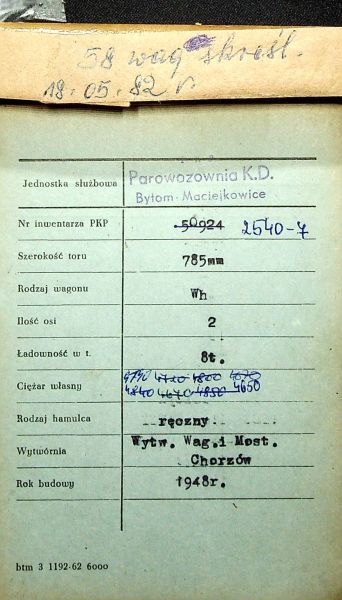 58 wag skreśl.
18.05.82 r.
Jednostka służbowa Parowozownia K.D.
Bytom-Maciejkowice
Nr inwentarza PKP 50924 2540-7
Szerokość toru 785mm
Rodzaj wagonu Wh
Ilość osi 2
Ładowność w t. 8t.
Ciężar własny 4740 4720 4800 4670
4840 4670 4850 4650
Rodzaj hamulca ręczny
Wytwórnia Wytw. Wag.i Most.
Chorzów
Rok budowy 1948r.
btm 3 1192-62 6000